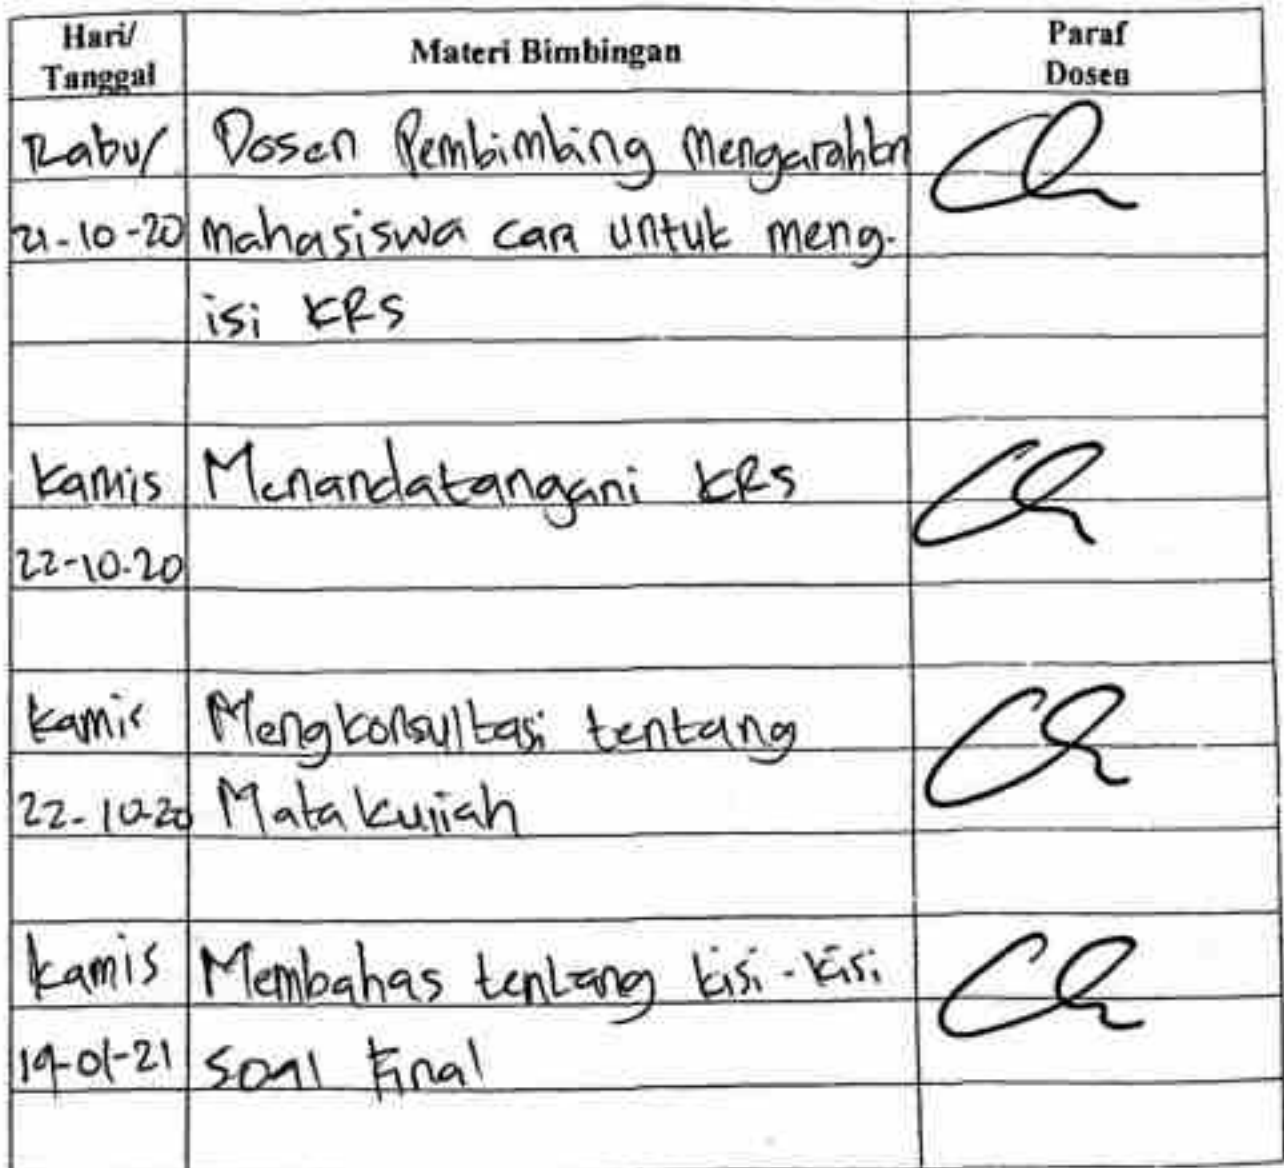 Hari/
Tanggal
Materi Bimbingan
Paraf
Dosen
Rabu/
Dosen Pembimbing Mengarahkn
21-10-20
mahasiswa cara untuk meng-
isi KRS
Kamis
Menandatangani KRS
22-10-20
Kamis
Mengkonsultasi tentang
22-10-20
Mata kuliah
Kamis
Membahas tentang kisi-kisi
19-01-21
soal Final